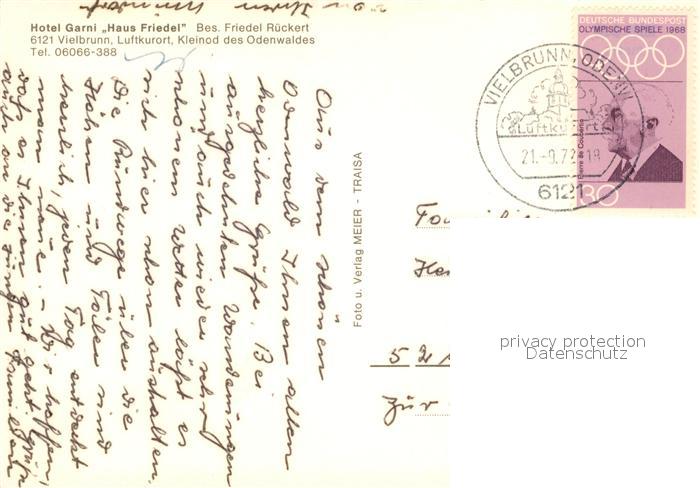 Hotel Garni „Haus Friedel" Bes. Friedel Rückert
6121 Vielbrunn, Luftkurort, Kleinod des Odenwaldes
Tel. 06066-388
Aus dem schönen
Odenwald Ihnen allen
herzliche Grüße. Bei
ausgedehnten Wanderungen
und auch wieder sehr
schönem Wetter läßt es
sich hier schon aushalten.
Die Rundwege über die
Höhen und Täler sind
herrlich, jeden Tag entdeckt
man neue. - Wir hoffen,
daß es Ihnen gut geht. Grüße
auch an die jungen Familien
von Ihren
Foto u. Verlag MEIER - TRAISA
DEUTSCHE BUNDESPOST
OLYMPISCHE SPIELE 1968
Pierre de Coubertin
30
VIELBRUNN, ODENW
Luftkurort
21.-9.72-18
6121
52
Zur
privacy protection
Datenschutz